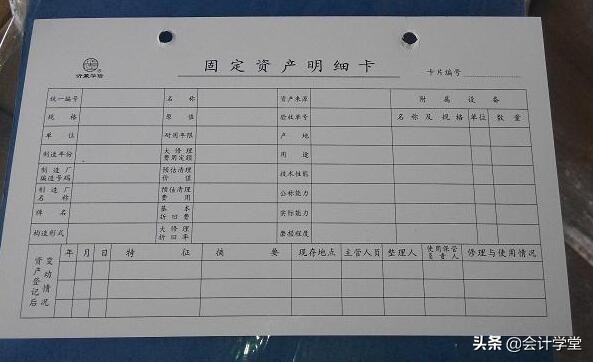 固定资产明细卡
卡片编号
统一编号 名称 资产来源 附属设备
规格 原值 验收单号 名称及规格 单位 数量
单位 耐用年限 产地
制造年份 大修理费用定额 用途
制造厂编造号码 预估清理价值 技术性能
制造厂名称 预估清理费用 公称能力
牌名 基本折旧费 实际能力
构造形式 大修理折旧率 磨损程度
资产登记后变动情况 年 月 日 特征 摘要 现存地点 主管人员 整理人 使用保管负责人 修理与使用情况
头条 @会计学堂